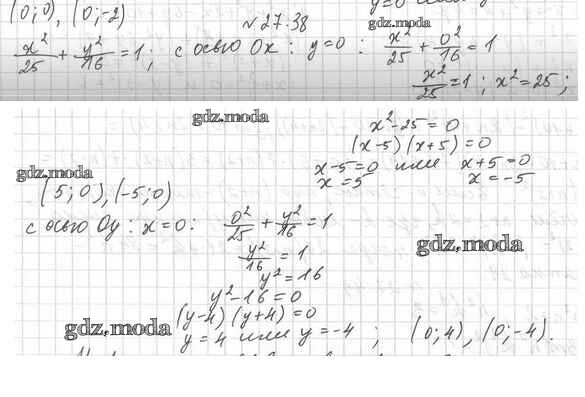 (0;0), (0;-2)
№27.38
gdz.moda
x²/25 + y²/16 = 1; с осью Ox : y=0 : x²/25 + 0²/16 = 1
x²/25 = 1 ; x² = 25 ;
gdz.moda
x²-25=0
(x-5)(x+5)=0
x-5=0 или x+5=0
x=5 x=-5
gdz.moda
(5;0),(-5;0)
с осью Oy : x=0: 0²/25 + y²/16 = 1
y²/16 = 1
gdz.moda
y²=16
y²-16=0
(y-4)(y+4)=0
gdz.moda
y=4 или y=-4 ; (0;4), (0;-4).